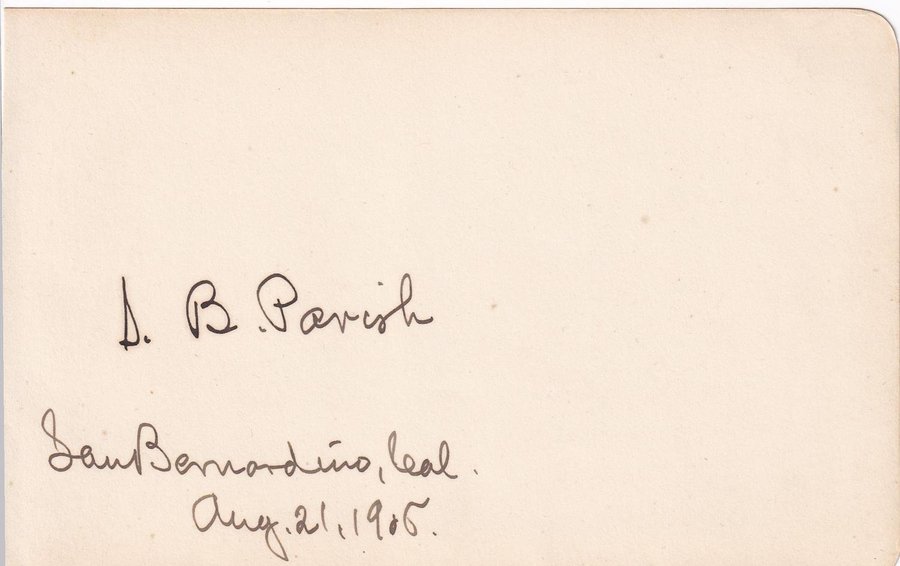 S. B. Parish
San Bernardino, Cal.
Aug. 21, 1905.